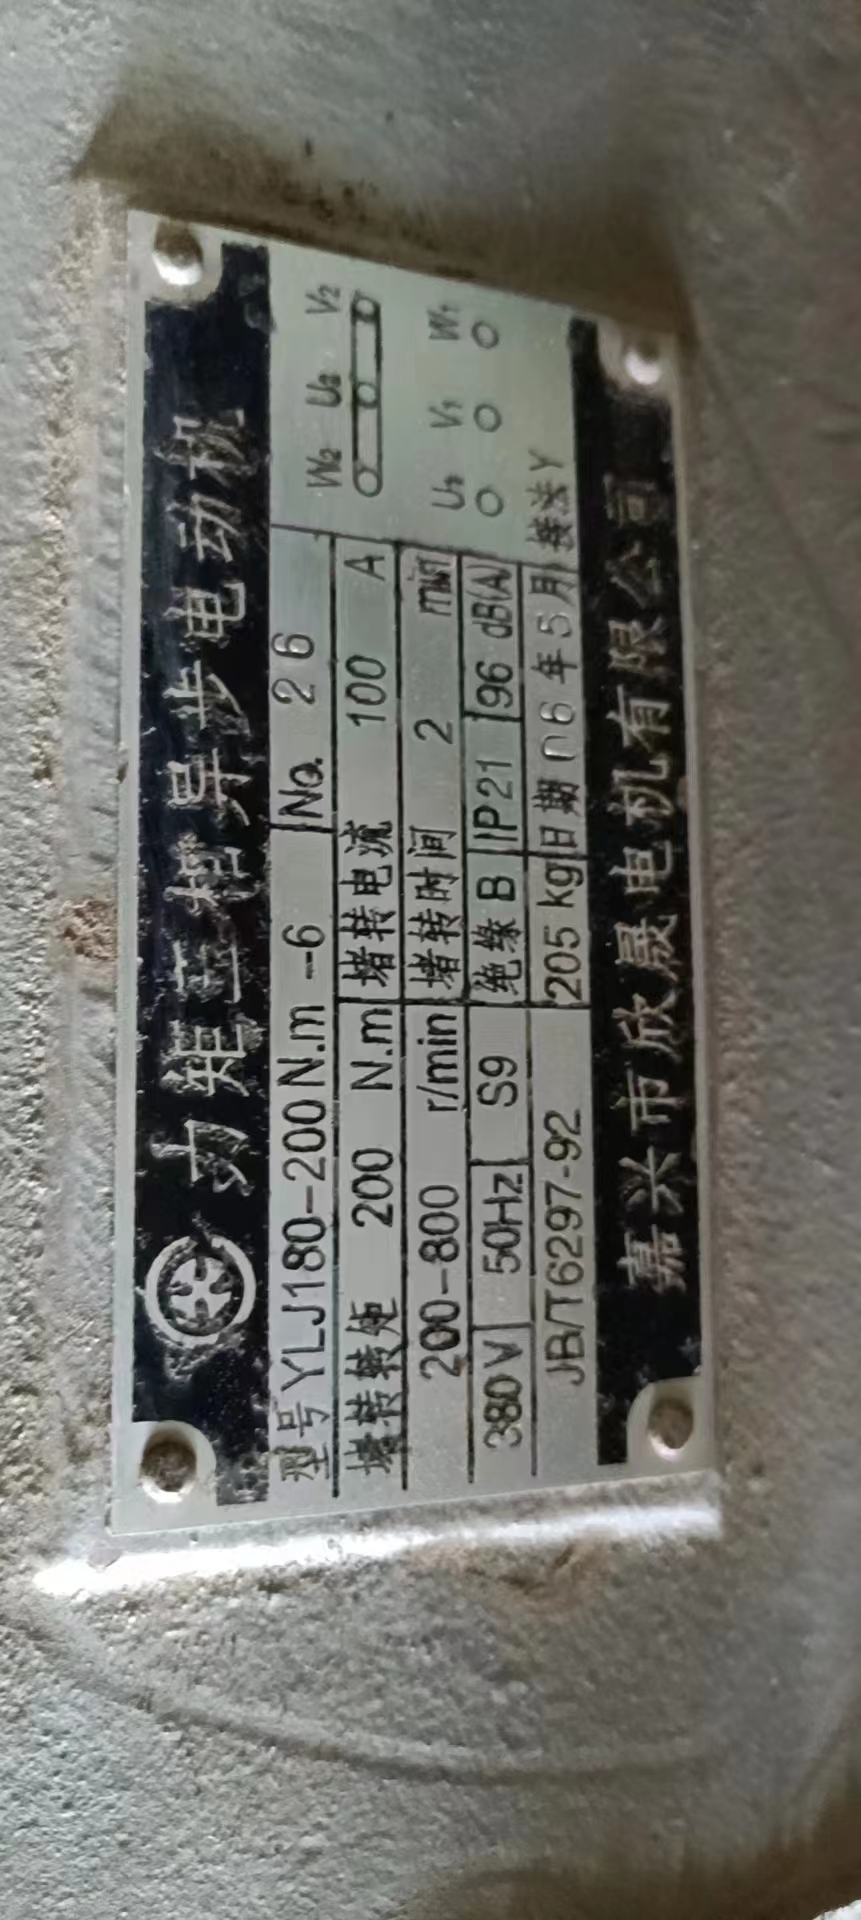 力矩三相异步电动机
型号 YLJ180-200N.m-6 No. 26
堵转转矩 200 N.m 堵转电流 100 A
200-800 r/min 堵转时间 2 min
380V 50Hz S9 绝缘B IP21 96 dB(A)
JB/T6297-92 205 kg 日期 06年5月
W2 U2 V2
U1 V1 W1
接法Y
嘉兴市欣晟电机有限公司